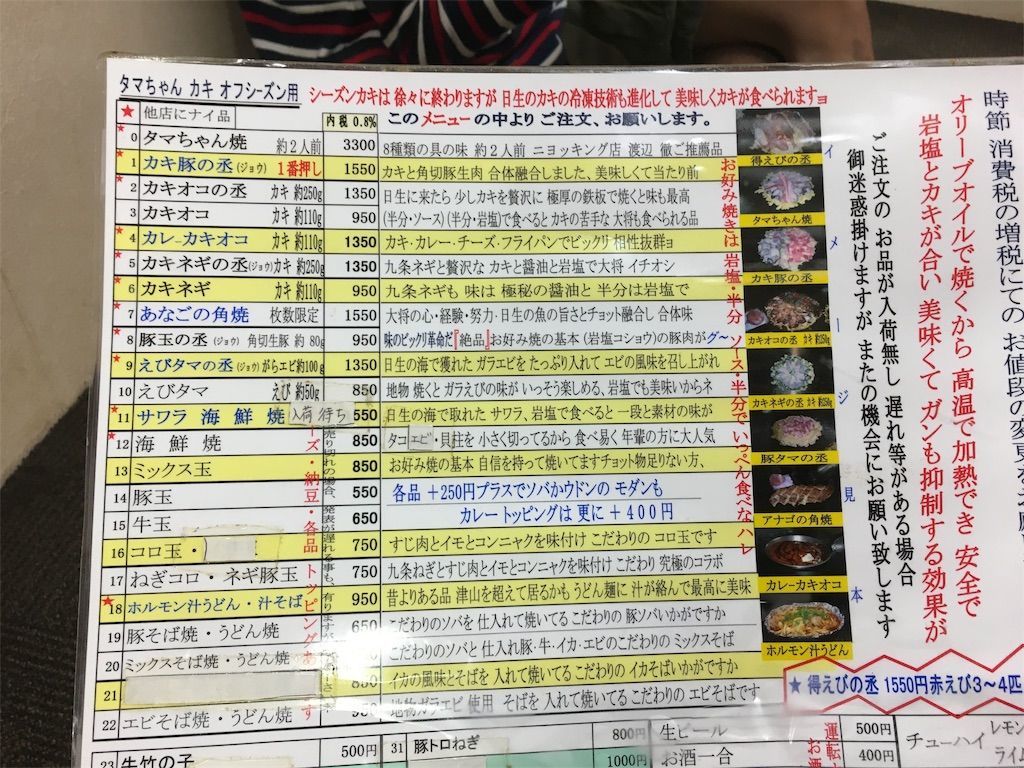 タマちゃん カキ オフシーズン用
シーズンカキは 徐々に終わりますが 日生のカキの冷凍技術も進化して 美味しくカキが食べられますョ
★ 他店にナイ品
内税 0.8%
このメニューの中より ご注文、お願いします。
★ 0 タマちゃん焼 約2人前 3300 8種類の具の味 約2人前 ニヨッキング店 渡辺 徹ご推薦品
★ 1 カキ豚の丞(ジョウ) 1番押し 1550 カキと角切豚生肉 合体融合しました、美味しくて当たり前
★ 2 カキオコの丞 カキ 約250g 1350 日生に来たら 少しカキを贅沢に 極厚の鉄板で焼くと味も最高
3 カキオコ カキ 約110g 950 (半分・ソース)(半分・岩塩)で食べると カキの苦手な 大将も食べられる品
★ 4 カレーカキオコ カキ 約110g 1350 カキ・カレー・チーズ・フライパンでビックリ 相性抜群ョ
★ 5 カキネギの丞(ジョウ) カキ 約250g 1350 九条ネギと贅沢な カキと醤油と岩塩で大将 イチオシ
★ 6 カキネギ カキ 約110g 950 九条ネギも 味は 極秘の醤油と 半分は岩塩で
★ 7 あなごの角焼 枚数限定 1550 大将の心・経験・努力・日生の魚の旨さとチョット融合し 合体味
★ 8 豚玉の丞(ジョウ) 角切生豚 約80g 950 味のビックリ革命だ「絶品」お好み焼の基本(岩塩コショウ)の豚肉がグ〜
★ 9 えびタマの丞(ジョウ) がらエビ約100g 1350 日生の海で獲れた ガラエビを たっぷり入れて エビの風味を召し上がれ
10 えびタマ えび 約50g 850 地物 焼くと ガラえびの味が いっそう楽しめる、岩塩でも美味いからネ
★ 11 サワラ 海鮮焼 入荷待ち 550 日生の海で取れた サワラ、岩塩で食べると 一段と素材の味が
★ 12 海鮮焼 850 タコ エビ・貝柱を 小さく切ってるから 食べ易く 年輩の方に大人気
13 ミックス玉 850 お好み焼の基本 自信を持って焼いてますチョット物足りない方、
14 豚玉 550 各品 +250円プラスでソバかウドンの モダンも
15 牛玉 650 カレートッピングは 更に +400円
16 コロ玉・ 750 すじ肉とイモとコンニャクを味付け こだわりの コロ玉です
17 ねぎコロ・ネギ豚玉 750 九条ねぎとすじ肉とイモとコンニャクを味付け こだわり 究極のコラボ
★ 18 ホルモン汁うどん・汁そば 950 昔よりある品 津山を超えて居るかもうどん麺に 汁が絡んで最高に美味
19 豚そば焼・うどん焼 650 こだわりのソバを 仕入れて焼いてる こだわりの 豚ソバいかがですか
20 ミックスそば焼・うどん焼 こだわりのソバと 仕入れ豚・牛・イカ・エビのこだわりの ミックスそば
21 850 イカの風味とそばを 入れて焼いてる こだわりの イカそばいかがですか
22 エビそば焼・うどん焼 950 地物ガラエビ 使用 そばを 入れて焼いてる こだわりの エビそばです
23 牛竹の子 500円
31 豚トロねぎ 800円
1000円
生ビール 500円
お酒一合 400円
チューハイ レモン
ライム
お好み焼きは 岩塩・半分 ソース・半分で いっぺん食べなハレ
イメージ見本
得えびの丞
タマちゃん焼
カキ豚の丞
カキオコの丞
カキネギの丞
豚タマの丞
アナゴの角焼
カレーカキオコ
ホルモン汁うどん
時節 消費税の増税にての お値段の変更を
オリーブオイルで焼くから 高温で加熱でき 安全で
岩塩とカキが合い 美味くて ガンも抑制する効果が
ご注文の お品が入荷無し 遅れ等がある場合
御迷惑掛けますが またの機会にお願い致します
★ 得えびの丞 1550円赤えび3〜4匹